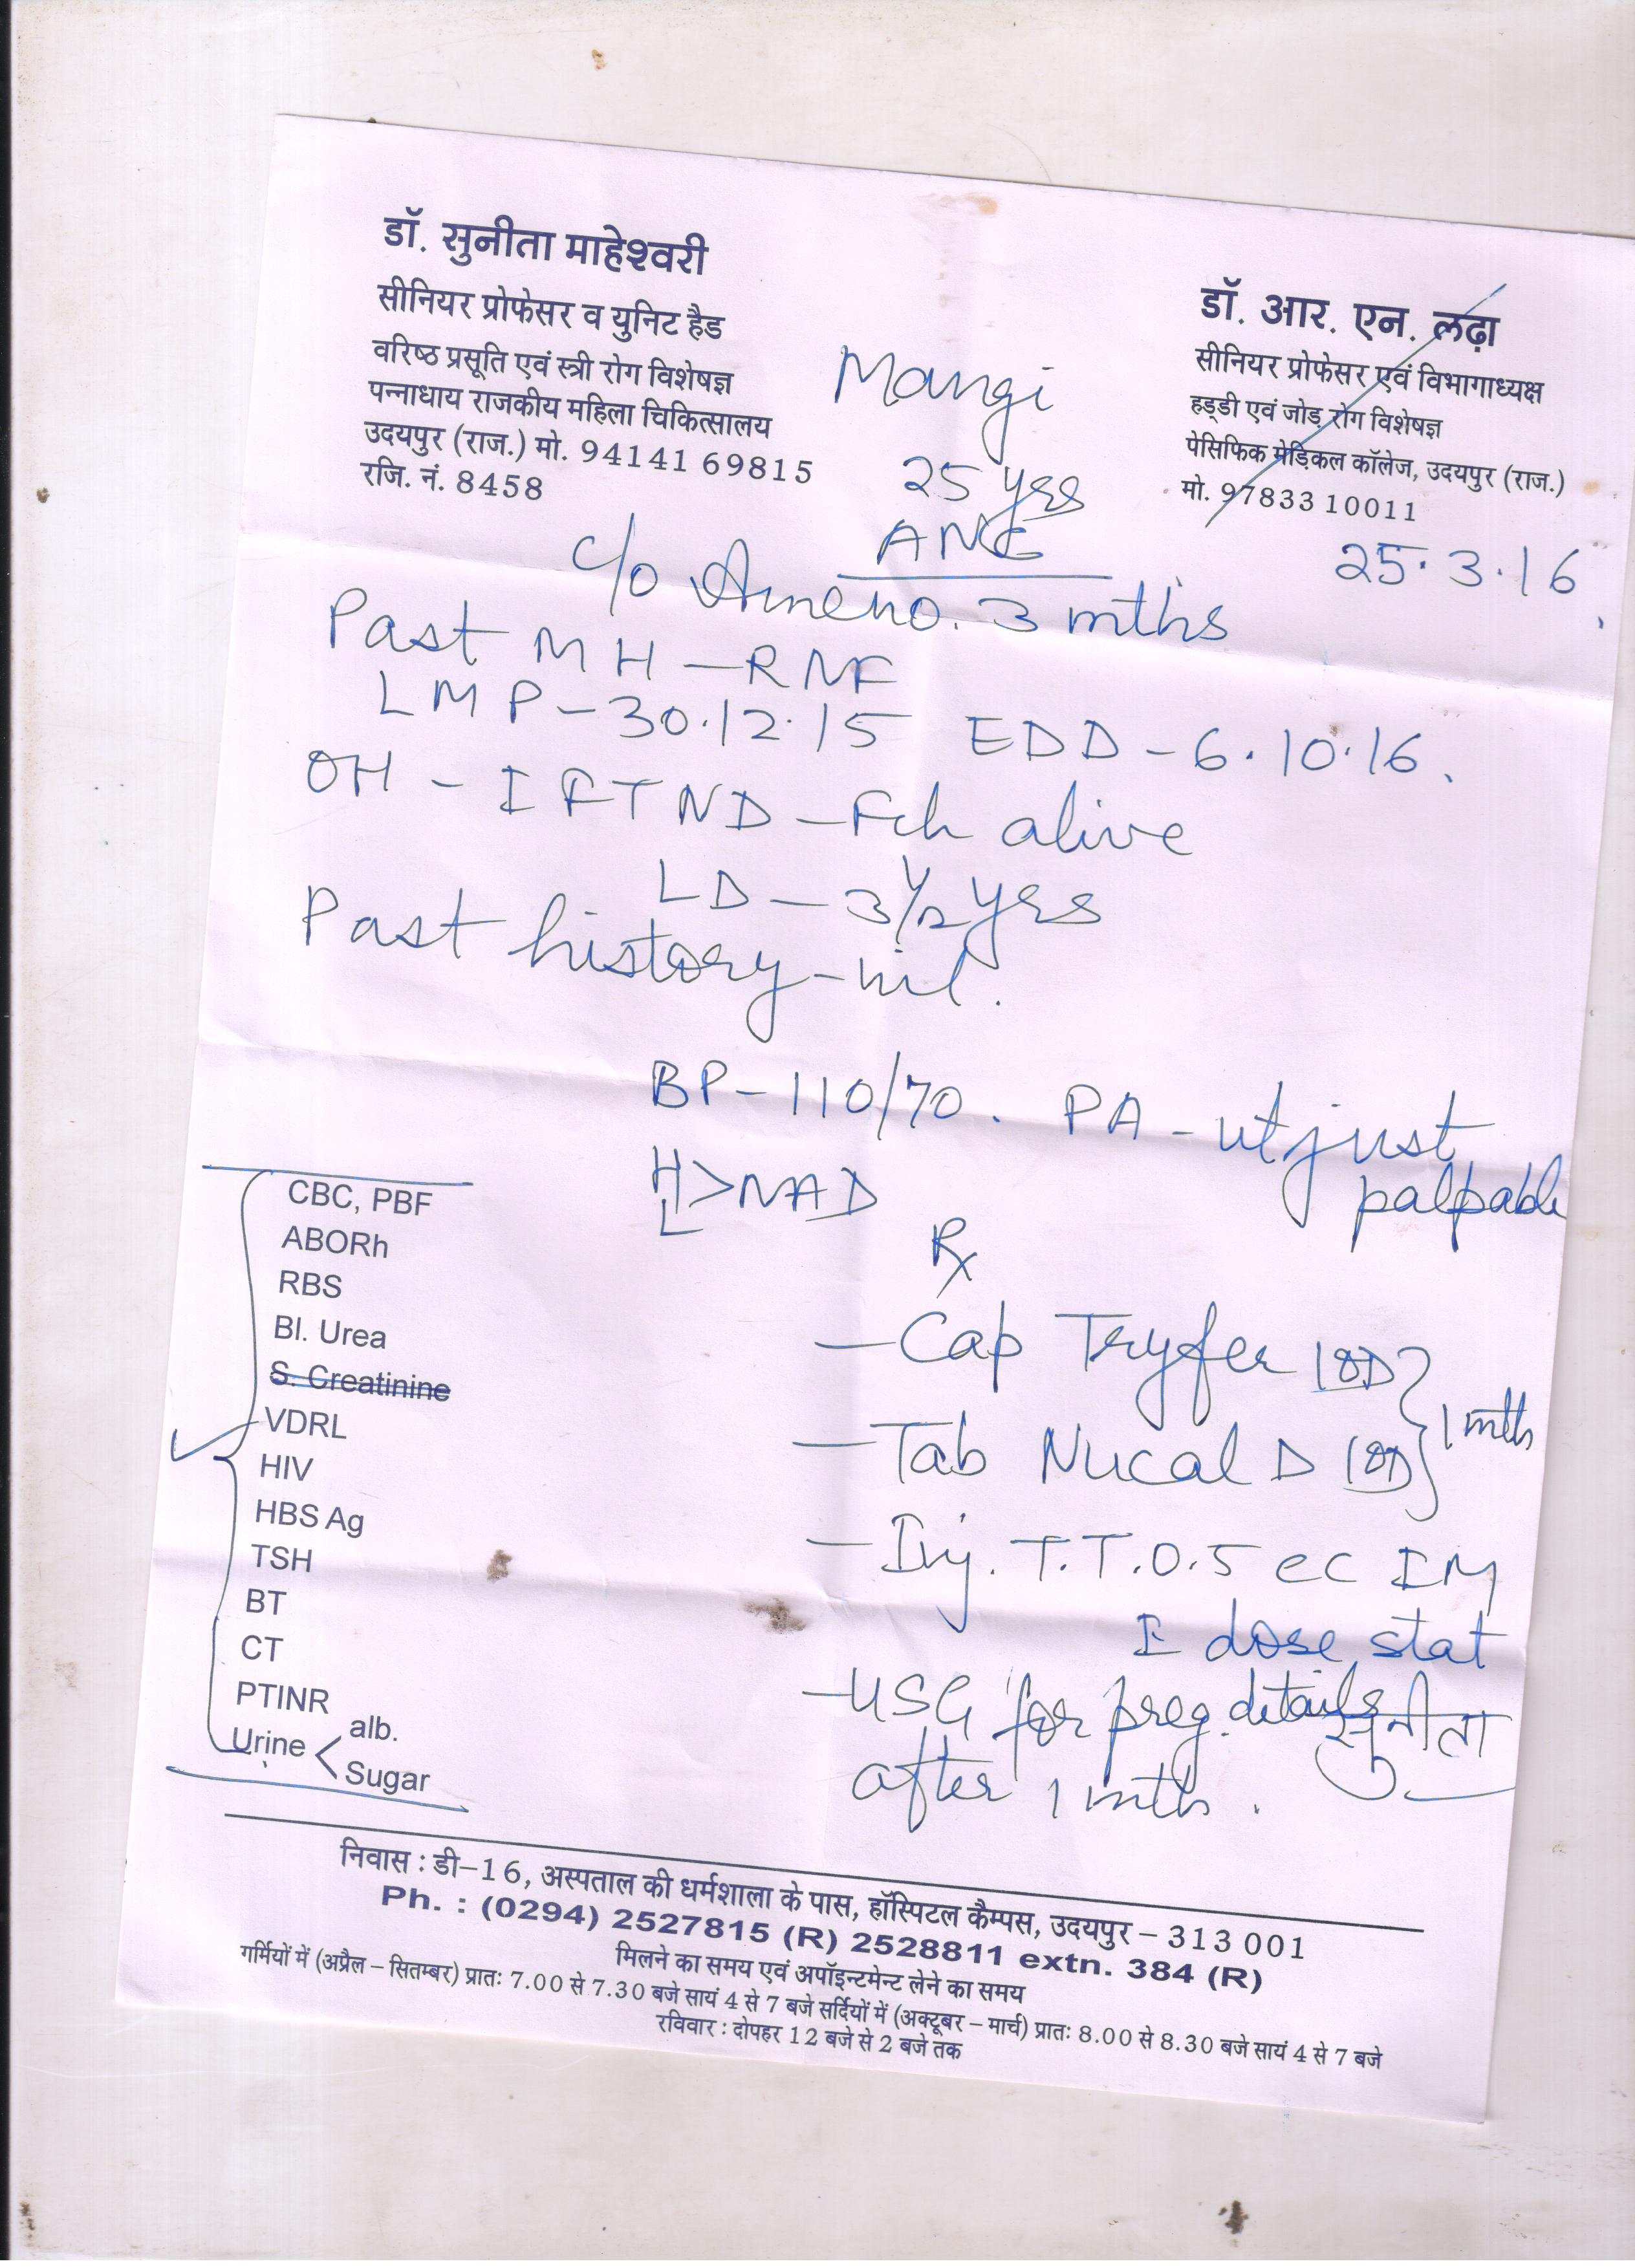 डॉ. सुनीता माहेश्वरी
सीनियर प्रोफेसर व युनिट हैड
वरिष्ठ प्रसूति एवं स्त्री रोग विशेषज्ञ
पन्नाधाय राजकीय महिला चिकित्सालय
उदयपुर (राज.) मो. 94141 69815
रजि. नं. 8458
डॉ. आर. एन. लढ़ा
सीनियर प्रोफेसर एवं विभागाध्यक्ष
हड्डी एवं जोड़ रोग विशेषज्ञ
पेसिफिक मेडिकल कॉलेज, उदयपुर (राज.)
मो. 97833 10011
Mangi
25 yrs
ANC
25.3.16
c/o Ameno. 3 mths
Past MH - RNF
LMP - 30.12.15 EDD - 6.10.16.
OH - I FTND - Fch alive
LD - 3 1/2 yrs
Past history - nil.
BP - 110/70. PA - ut just
palpable
H
L > NAD
CBC, PBF
ABORh
RBS
Bl. Urea
S. Creatinine
VDRL
HIV
HBS Ag
TSH
BT
CT
PTINR
Urine < alb.
Sugar
Rx
- Cap Tryfer 1 OD
- Tab Nucal D 1 OD } 1 mth
- Inj. T.T. 0.5 cc IM
I dose stat
- USG for preg. details
after 1 mth.
सुनीता
निवास : डी-16, अस्पताल की धर्मशाला के पास, हॉस्पिटल कैम्पस, उदयपुर – 313 001
Ph. : (0294) 2527815 (R) 2528811 extn. 384 (R)
मिलने का समय एवं अपॉइन्टमेन्ट लेने का समय
गर्मियों में (अप्रैल – सितम्बर) प्रातः 7.00 से 7.30 बजे सायं 4 से 7 बजे सर्दियों में (अक्टूबर – मार्च) प्रातः 8.00 से 8.30 बजे सायं 4 से 7 बजे
रविवार : दोपहर 12 बजे से 2 बजे तक